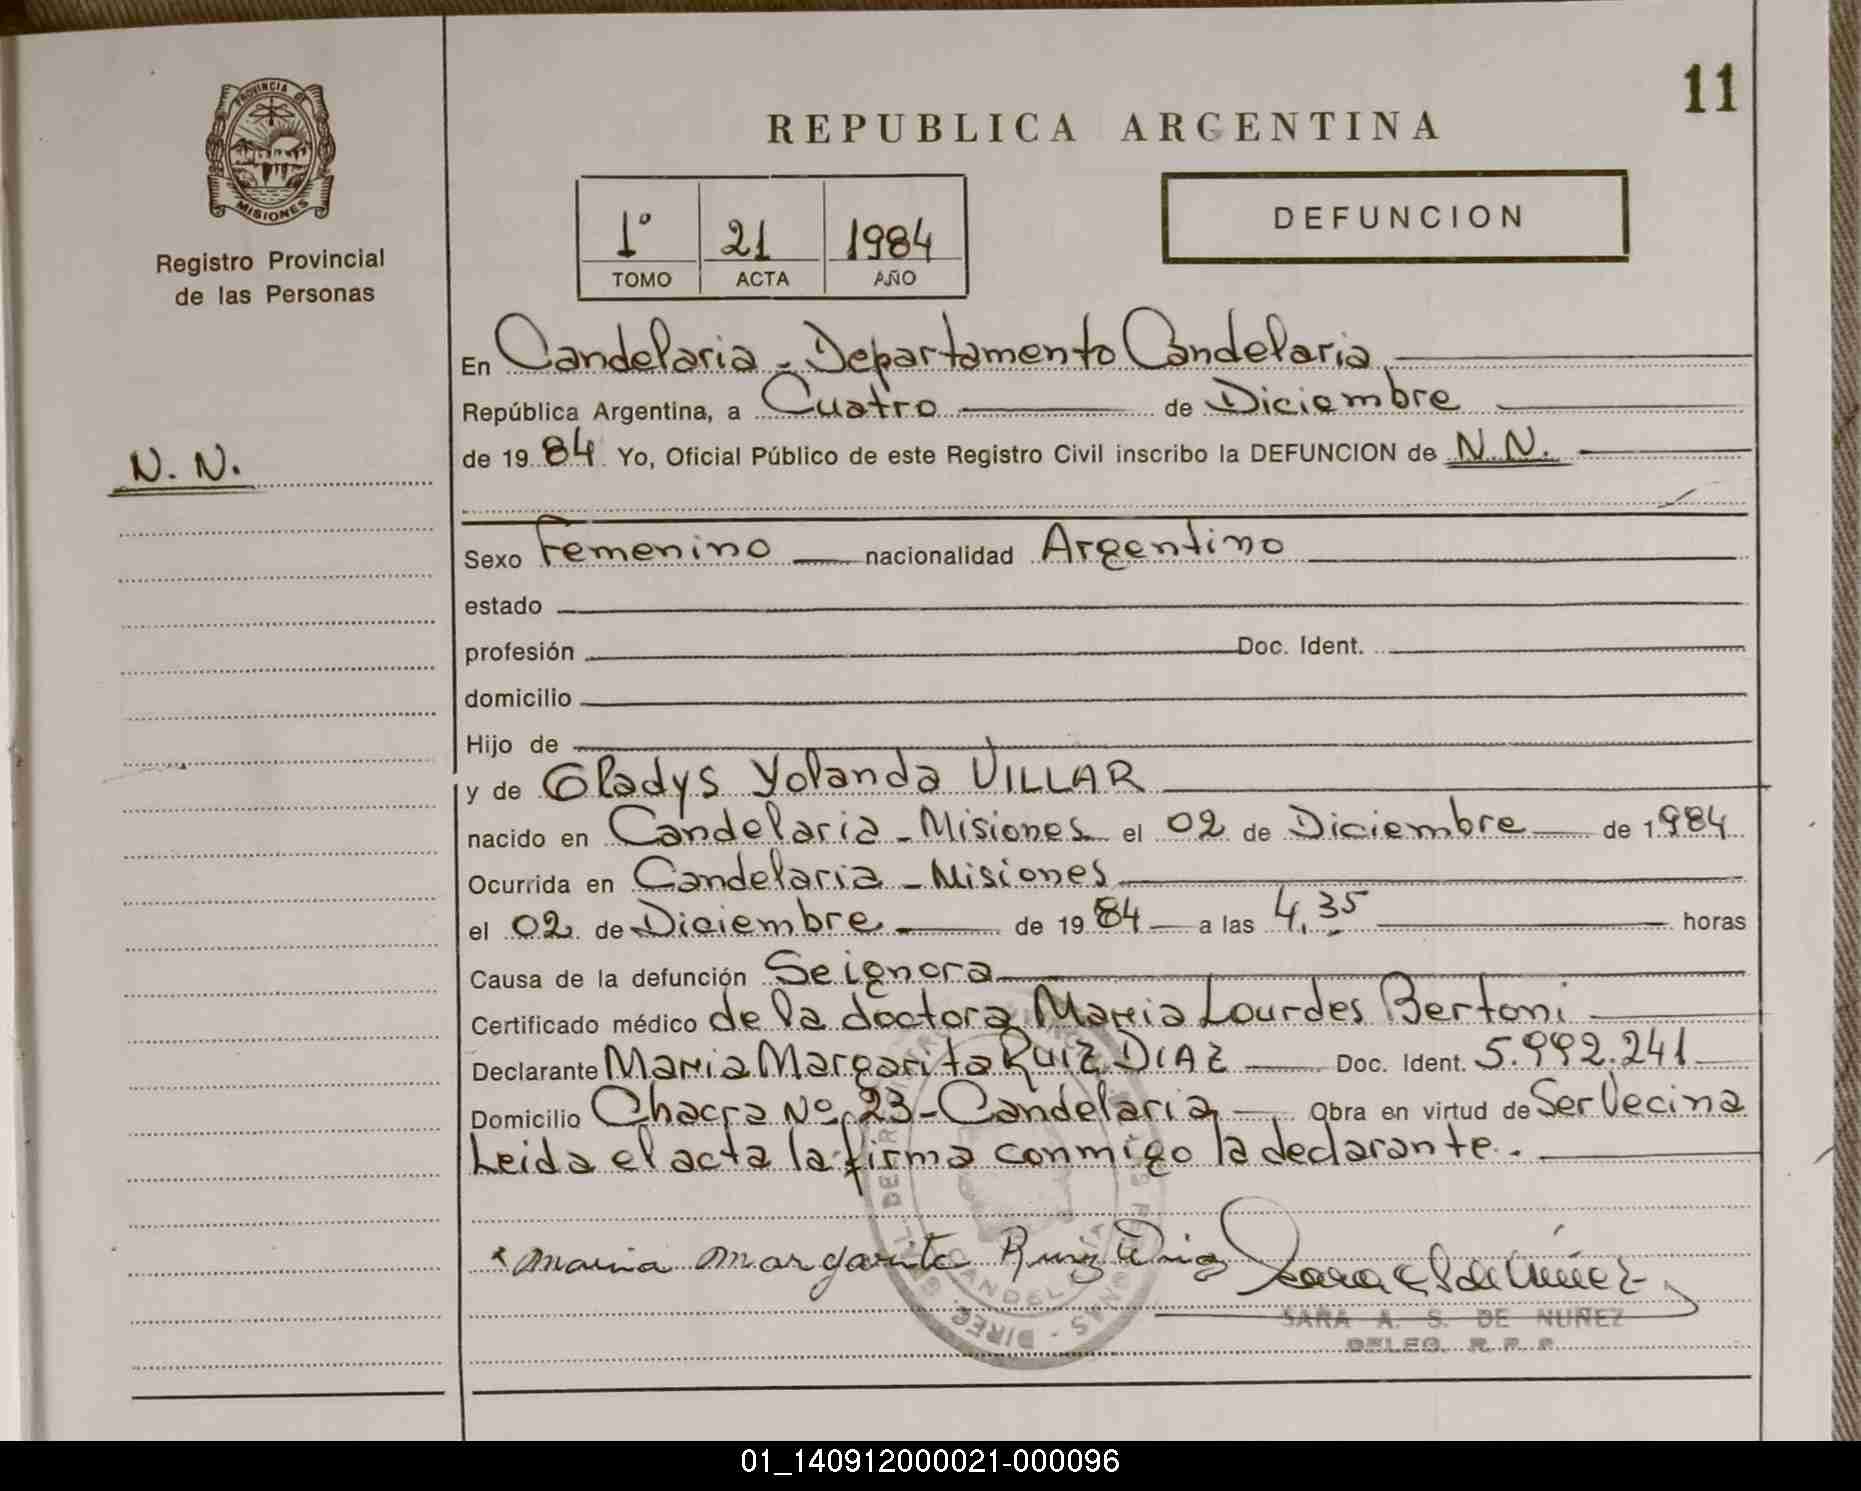 11
PROVINCIA DE
MISIONES
Registro Provincial
de las Personas
REPUBLICA ARGENTINA
1º 21 1984
TOMO ACTA AÑO
DEFUNCION
En Candelaria - Departamento Candelaria
República Argentina, a Cuatro de Diciembre
N. N.
de 1984 Yo, Oficial Público de este Registro Civil inscribo la DEFUNCION de N.N.
Sexo Femenino nacionalidad Argentino
estado
profesión Doc. Ident.
domicilio
Hijo de
y de Gladys Yolanda VILLAR
nacido en Candelaria - Misiones el 02 de Diciembre de 1984
Ocurrida en Candelaria - Misiones
el 02 de Diciembre de 1984 a las 4,35 horas
Causa de la defunción Seignora
Certificado médico de la doctora Maria Lourdes Bertoni
Declarante Maria Margarita RUIZ DIAZ Doc. Ident. 5.992.241
Domicilio Chacra Nº 23 - Candelaria Obra en virtud de Ser Vecina
Leida el acta la firma conmigo la declarante.
Maria Margarita Ruiz Diaz
CANDELARIA
SARA A. S. DE NUÑEZ
DELEG. R. P. P.
01_140912000021-000096